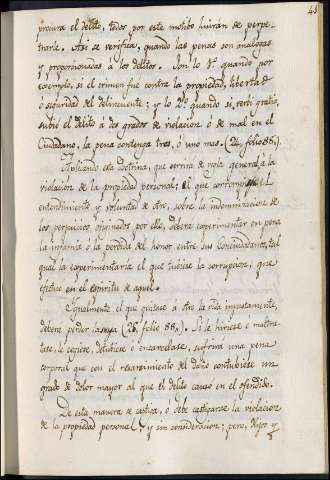 43
procura el delito, todos por este motibo huirán de perpe-
trarle. Asi se verifica, quando las penas son analogas
y proporcionadas á los delitos. Son lo 1º quando por
exemplo, si el crimen fue contra la propiedad, libertad
ó seguridad del delincuente; y lo 2º quando si, verbi gratia,
subió el delito á dos grados de violacion ó de mal en el
Ciudadano, la pena contenga tres, ó uno mas. (24, folio 86,)
Aplicando esta doctrina, que servira de regla general á la
violacion de la propiedad personal; el que corrompe el
entendimiento y voluntad de otro, sobre la indemnizacion de
los perjuicios originados por ello, debera experimentar en pena
la infamia ó la perdida del honor entre sus Conciudadanos, tal
qual la experimentaria el que tubiese la corrupcion, que
efectuó en el espiritu de aquel.
Igualmente el que quitase á otro la vida injustamente,
debera perder la suya (26, folio 88,). Si le hiriese ó maltra-
tase, le cogiere, detubiese ó encarcelase, sufrirá una pena
corporal que con el resarcimiento del daño contubiese un
grado de dolor mayor al que el delito causó en el ofendido.
De esta manera se castiga, ó debe castigarse la violacion
de la propiedad personal, y sin consideracion; pero, Hijos y